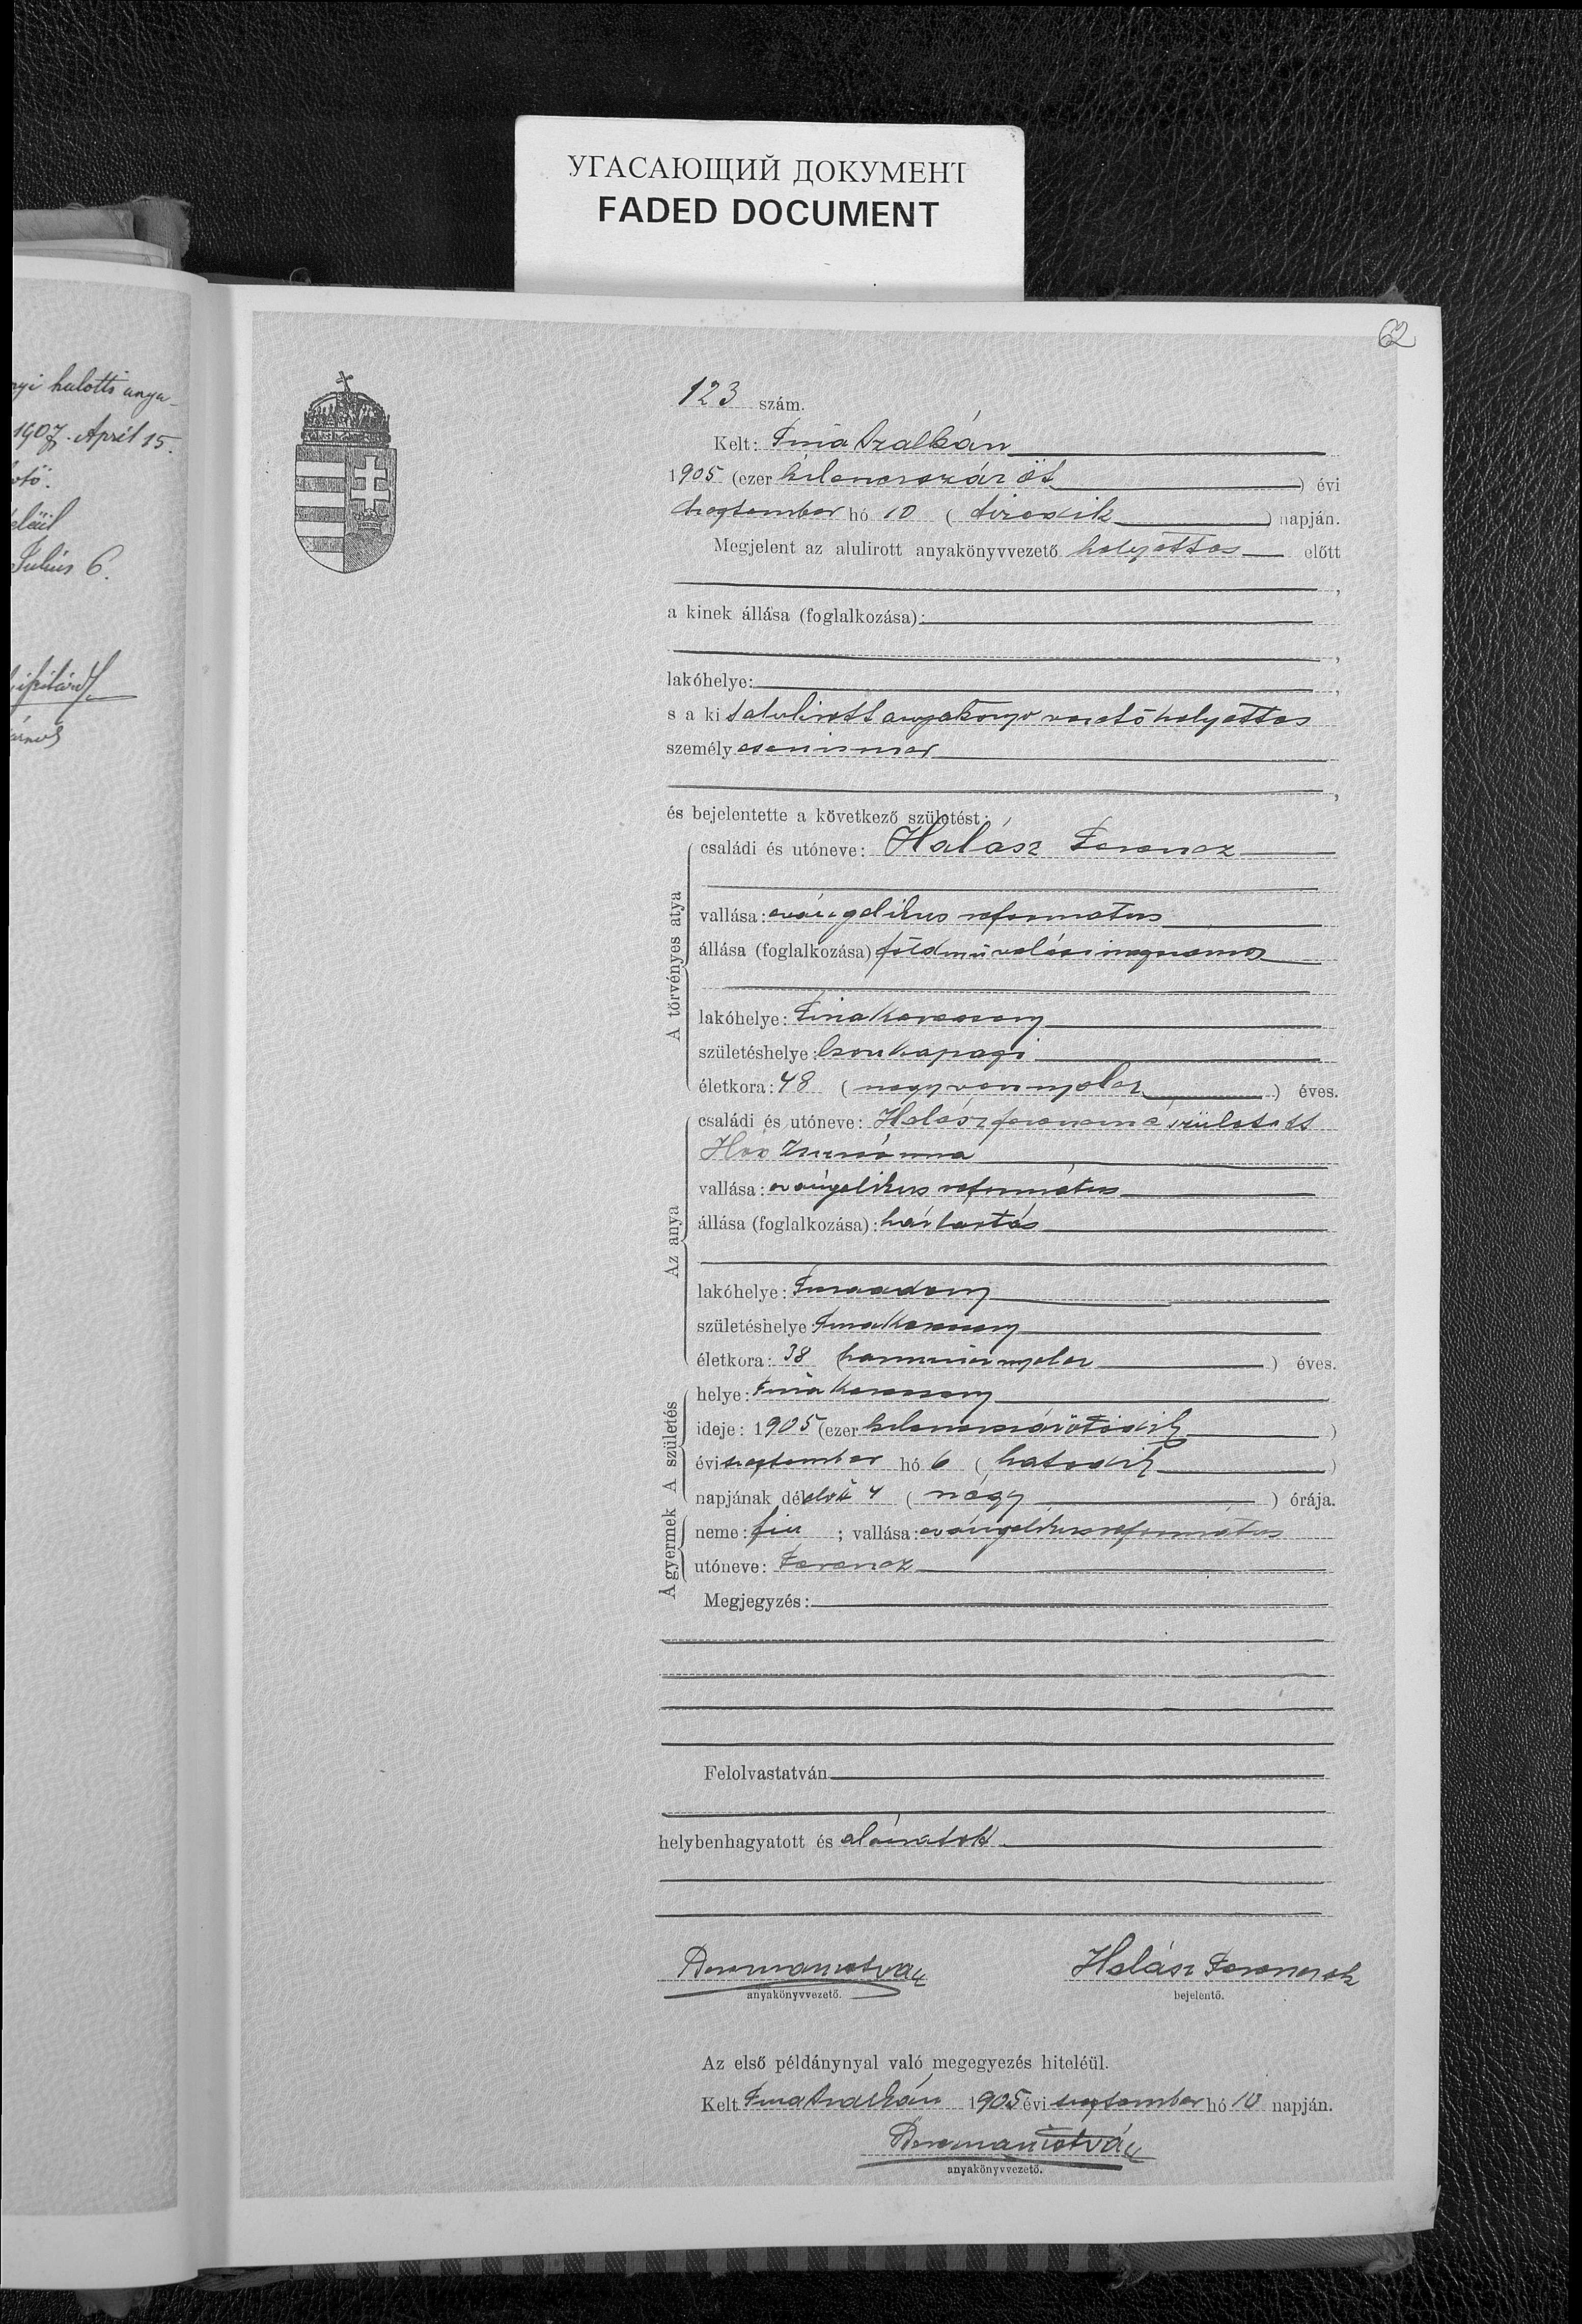 УГАСАЮЩИЙ ДОКУМЕНТ
FADED DOCUMENT
62
halotti anya-
1907. April 15.
Julius 6.
123 szám.
Kelt: Tiszaszalkán
1905 (ezer kilencszáz öt) évi
szeptember hó 10 (tizedik) napján.
Megjelent az alulirott anyakönyvvezető helyettes előtt
,
a kinek állása (foglalkozása):
,
lakóhelye: ,
s a kit alulirott anyakönyv vezető helyettes
személyesen ismer
,
és bejelentette a következő születést:
A törvényes atya
családi és utóneve: Halász Ferencz
vallása: evángelikus reformatus
állása (foglalkozása) földmüvelési
lakóhelye: Tiszakerecseny
születéshelye: Csonkapapi
életkora: 48 (negyvennyolcz) éves.
Az anya
családi és utóneve: Halász ferenczné született
Zsuzsánna
vallása: evángelikus református
állása (foglalkozása): háztartás
lakóhelye: Tiszaadony
születéshelye: Tiszakerecseny
életkora: 38 (harmincznyolcz) éves.
A születés
helye: Tiszakerecseny
ideje: 1905 (ezer kilenczszázötödik)
évi szeptember hó 6 (hatodik)
napjának délelőt 4 (négy) órája.
A gyermek
neme: fiu ; vallása: evángelikus református
utóneve: Ferencz
Megjegyzés:
Felolvastatván
helybenhagyatott és aláiratott
István Halász Ferencz
anyakönyvvezető. bejelentő.
Az első példánynyal való megegyezés hiteléül.
Kelt Tiszaszalkán 1905 évi szeptember hó 10 napján.
István
anyakönyvvezető.